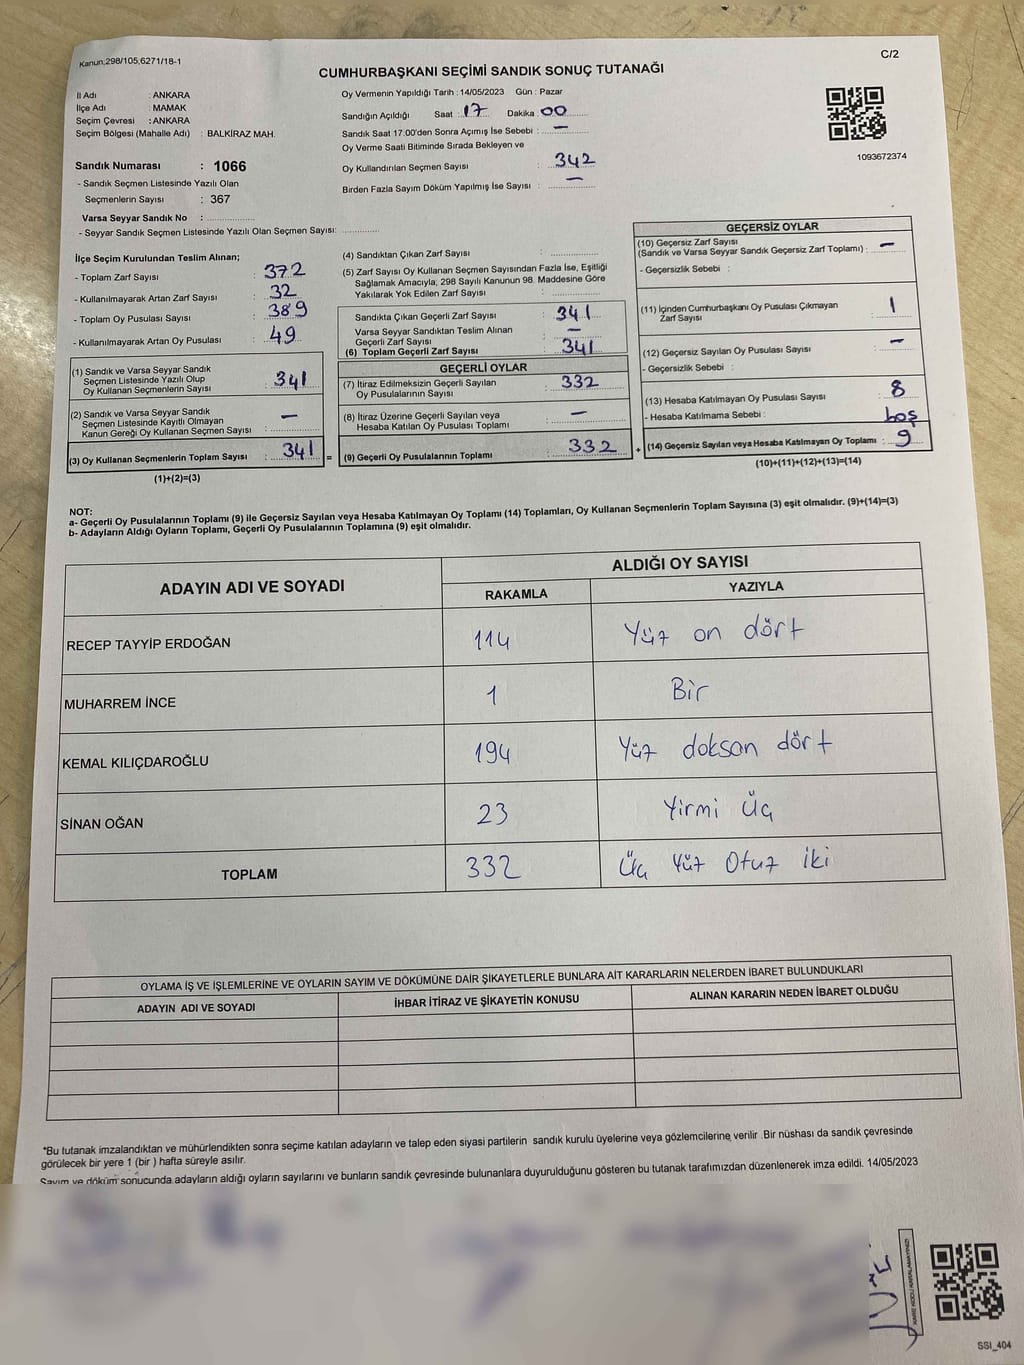 Kanun,298/105,6271/18-1
C/2
CUMHURBAŞKANI SEÇİMİ SANDIK SONUÇ TUTANAĞI
İl Adı : ANKARA
İlçe Adı : MAMAK
Seçim Çevresi : ANKARA
Seçim Bölgesi (Mahalle Adı) : BALKİRAZ MAH.
Sandık Numarası : 1066
- Sandık Seçmen Listesinde Yazılı Olan
Seçmenlerin Sayısı : 367
Varsa Seyyar Sandık No :
- Seyyar Sandık Seçmen Listesinde Yazılı Olan Seçmen Sayısı:
Oy Vermenin Yapıldığı Tarih : 14/05/2023 Gün : Pazar
Sandığın Açıldığı Saat : 17 Dakika 00
Sandık Saat 17:00'den Sonra Açımış İse Sebebi : —
Oy Verme Saati Bitiminde Sırada Bekleyen ve
Oy Kullandırılan Seçmen Sayısı : 342
Birden Fazla Sayım Döküm Yapılmış İse Sayısı : —
1093672374
İlçe Seçim Kurulundan Teslim Alınan;
- Toplam Zarf Sayısı : 372
- Kullanılmayarak Artan Zarf Sayısı : 32
- Toplam Oy Pusulası Sayısı : 389
- Kullanılmayarak Artan Oy Pusulası : 49
(1) Sandık ve Varsa Seyyar Sandık
Seçmen Listesinde Yazılı Olup
Oy Kullanan Seçmenlerin Sayısı : 341
(2) Sandık ve Varsa Seyyar Sandık
Seçmen Listesinde Kayıtlı Olmayan
Kanun Gereği Oy Kullanan Seçmen Sayısı : —
(3) Oy Kullanan Seçmenlerin Toplam Sayısı : 341 =
(1)+(2)=(3)
(4) Sandıktan Çıkan Zarf Sayısı :
(5) Zarf Sayısı Oy Kullanan Seçmen Sayısından Fazla İse, Eşitliği
Sağlamak Amacıyla, 298 Sayılı Kanunun 98. Maddesine Göre
Yakılarak Yok Edilen Zarf Sayısı :
Sandıkta Çıkan Geçerli Zarf Sayısı : 341
Varsa Seyyar Sandıktan Teslim Alınan
Geçerli Zarf Sayısı : —
(6) Toplam Geçerli Zarf Sayısı : 341
GEÇERLİ OYLAR
(7) İtiraz Edilmeksizin Geçerli Sayılan
Oy Pusulalarının Sayısı : 332
(8) İtiraz Üzerine Geçerli Sayılan veya
Hesaba Katılan Oy Pusulası Toplamı : —
(9) Geçerli Oy Pusulalarının Toplamı : 332 +
GEÇERSİZ OYLAR
(10) Geçersiz Zarf Sayısı
(Sandık ve Varsa Seyyar Sandık Geçersiz Zarf Toplamı) : —
- Geçersizlik Sebebi :
(11) İçinden Cumhurbaşkanı Oy Pusulası Çıkmayan
Zarf Sayısı : 1
(12) Geçersiz Sayılan Oy Pusulası Sayısı : —
- Geçersizlik Sebebi :
(13) Hesaba Katılmayan Oy Pusulası Sayısı : 8
- Hesaba Katılmama Sebebi : boş
(14) Geçersiz Sayılan veya Hesaba Katılmayan Oy Toplamı : 9
(10)+(11)+(12)+(13)=(14)
NOT:
a- Geçerli Oy Pusulalarının Toplamı (9) ile Geçersiz Sayılan veya Hesaba Katılmayan Oy Toplamı (14) Toplamları, Oy Kullanan Seçmenlerin Toplam Sayısına (3) eşit olmalıdır. (9)+(14)=(3)
b- Adayların Aldığı Oyların Toplamı, Geçerli Oy Pusulalarının Toplamına (9) eşit olmalıdır.
ADAYIN ADI VE SOYADI
ALDIĞI OY SAYISI
RAKAMLA YAZIYLA
RECEP TAYYİP ERDOĞAN 114 Yüz on dört
MUHARREM İNCE 1 Bir
KEMAL KILIÇDAROĞLU 194 Yüz doksan dört
SİNAN OĞAN 23 Yirmi Üç
TOPLAM 332 Üç Yüz Otuz iki
OYLAMA İŞ VE İŞLEMLERİNE VE OYLARIN SAYIM VE DÖKÜMÜNE DAİR ŞİKAYETLERLE BUNLARA AİT KARARLARIN NELERDEN İBARET BULUNDUKLARI
ADAYIN ADI VE SOYADI İHBAR İTİRAZ VE ŞİKAYETİN KONUSU ALINAN KARARIN NEDEN İBARET OLDUĞU
*Bu tutanak imzalandıktan ve mühürlendikten sonra seçime katılan adayların ve talep eden siyasi partilerin sandık kurulu üyelerine veya gözlemcilerine verilir .Bir nüshası da sandık çevresinde
görülecek bir yere 1 (bir ) hafta süreyle asılır.
Sayım ve döküm sonucunda adayların aldığı oyların sayılarını ve bunların sandık çevresinde bulunanlara duyurulduğunu gösteren bu tutanak tarafımızdan düzenlenerek imza edildi. 14/05/2023
SSI_404